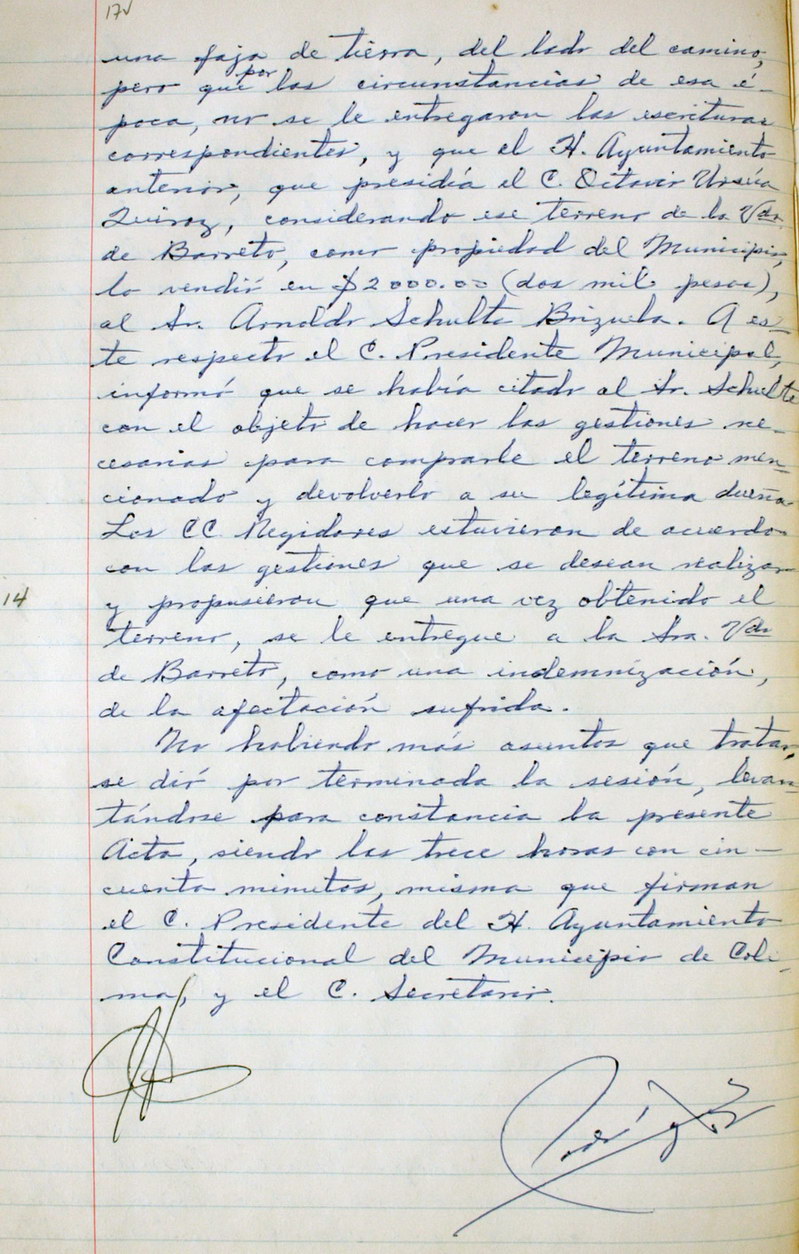 17v
una faja de tierra, del lado del camino,
pero que por las circunstancias de esa é-
poca, no se le entregaron las escrituras
correspondientes, y que el H. Ayuntamiento
anterior, que presidía el C. Octavio Ursúa
Quiroz, considerando ese terreno de la Vda.
de Barreto, como propiedad del Municipio,
lo vendió en $2000.00 (dos mil pesos),
al Sr. Arnoldo Schulte Brizuela. A es-
te respecto el C. Presidente Municipal,
informó que se había citado al Sr. Schulte
con el objeto de hacer las gestiones ne-
cesarias para comprarle el terreno men-
cionado y devolverlo a su legítima dueña
Los CC. Regidores estuvieron de acuerdo
con las gestiones que se desean realizar
14
y propusieron que una vez obtenido el
terreno, se le entregue a la Sra. Vda
de Barreto, como una indemnización,
de la afectación sufrida.
No habiendo más asuntos que tratar,
se dió por terminada la sesión, levan-
tándose para constancia la presente
Acta, siendo las trece horas con cin-
cuenta minutos, misma que firman
el C. Presidente del H. Ayuntamiento
Constitucional del Municipio de Coli-
ma, y el C. Secretario.